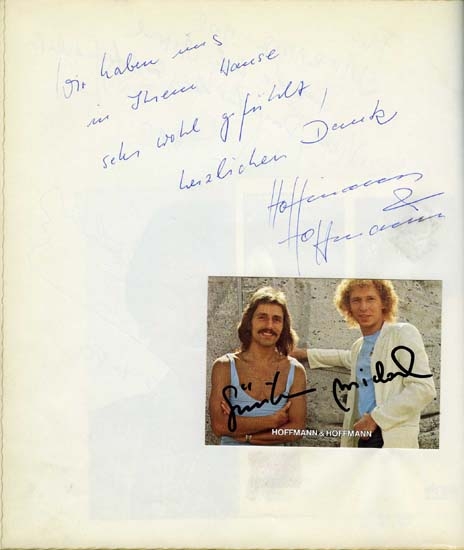 Wir haben uns
in Ihrem Hause
sehr wohl gefühlt!
herzlichen Dank
Hoffmann
&
Hoffmann
Günter Michael
HOFFMANN & HOFFMANN